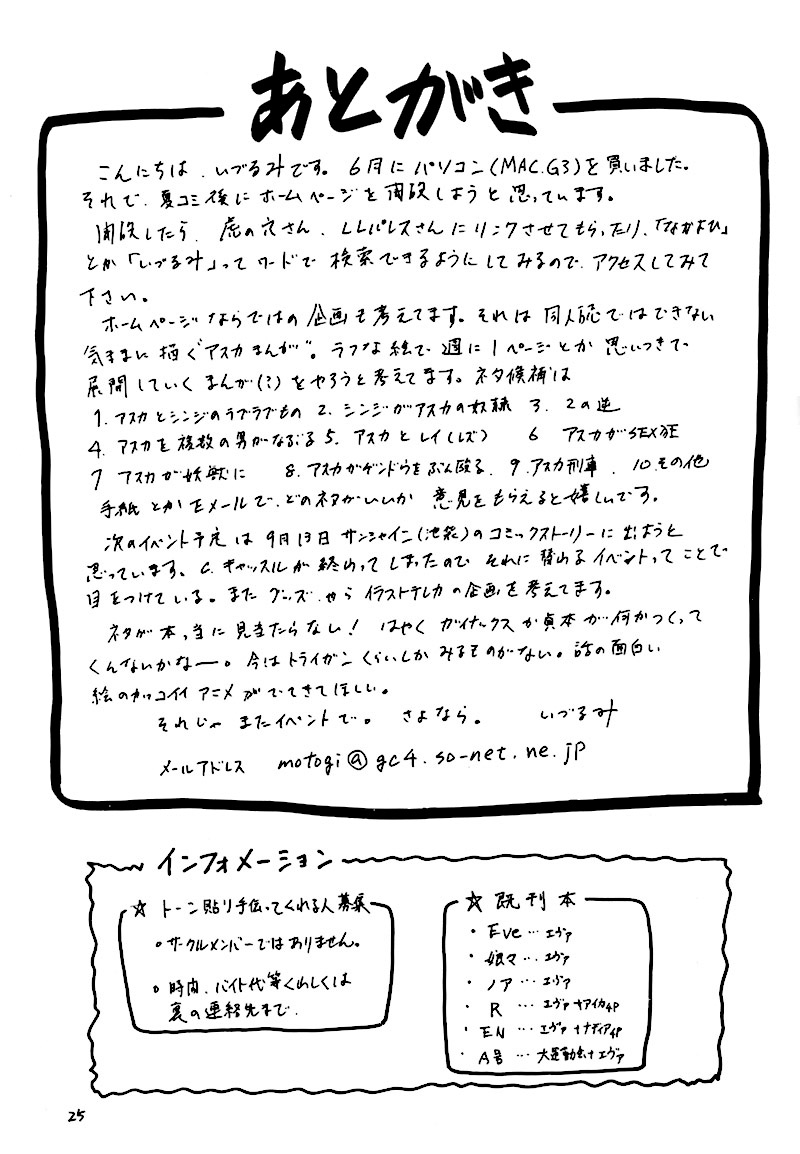 あとがき
こんにちは、いづるみです。6月にパソコン(MAC.G3)を買いました。
それで、夏コミ後にホームページを開設しようと思っています。
開設したら、虎の穴さん、LLパレスさんにリンクさせてもらったり、「なかよひ」
とか「いづるみ」ってワードで検索できるようにしてみるので、アクセスしてみて
下さい。
ホームページならではの企画も考えてます。それは同人誌ではできない
気ままに描く"アスカまんが"。ラフな絵で週に1ページとか思いつきで
展開していくまんが(?)をやろうと考えてます。ネタ候補は
1. アスカとシンジのラブラブもの 2. シンジがアスカの奴隷 3. 2の逆
4. アスカを複数の男がなぶる 5. アスカとレイ(レズ) 6 アスカがSEX狂
7 アスカが妖獣に 8. アスカがゲンドウをぶん殴る. 9. アスカ刑事. 10.その他
手紙とかEメールで、どのネタがいいか 意見をもらえると嬉しいです。
次のイベント予定は9月13日サンシャイン(池袋)のコミックストーリーに出ようと
思っています。C.キャッスルが終わってしまったので それに替わるイベントってことで
目をつけている。また グッズ、やら イラストテレカの企画を考えてます。
ネタが本っ当に見当たらない! はやく ガイナックスか貞本が何かつくって
くんないかなー。今はトライガンくらいしかみるものがない。話の面白い
絵のカッコイイ アニメがでてきてほしい。
それじゃ またイベントで。 さよなら。 いづるみ
メールアドレス motogi@gc4.so-net.ne.jp
インフォメーション
☆ トーン貼り手伝ってくれる人募集
○サークルメンバーではありません。
○時間、バイト代等くわしくは
裏の連絡先まで.
☆ 既刊本
・Eve…エヴァ
・娘々…エヴァ
・ノア…エヴァ
・R …エヴァ+アイカ4P
・EN …エヴァ+ナディア4P
・A号 …大運動会+エヴァ
25